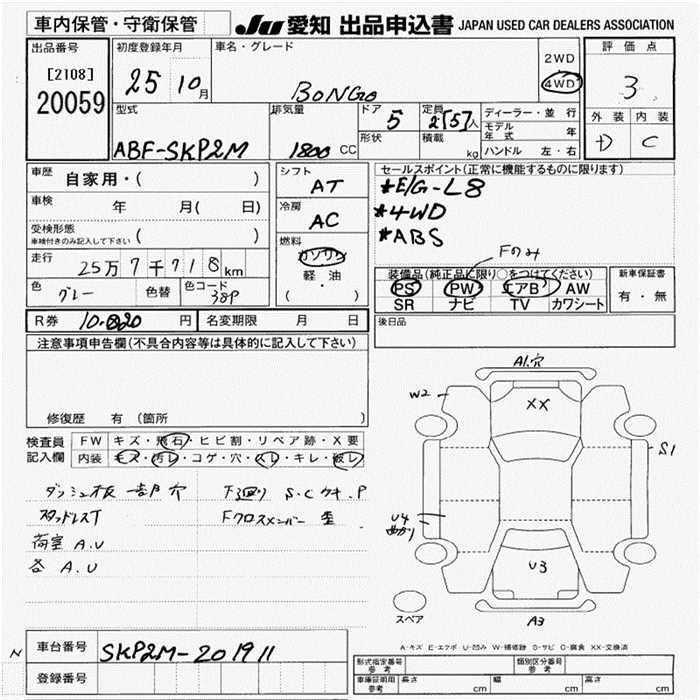 車内保管・守衛保管
JU 愛知 出品申込書 JAPAN USED CAR DEALERS ASSOCIATION
出品番号
[2108]
20059
初度登録年月
25 10月
車名・グレード
BONGO
2WD
4WD
評価点
3
外装 内装
D C
型式
ABF-SKP2M
排気量
1800 CC
ドア
5
形状
定員
2[5]人
積載
kg
ディーラー・並行
モデル年式 年
ハンドル 左・右
車歴 自家用・( )
車検 年 月( 日)
受検形態
車検付きのみ記入して下さい ( )
走行 25万7千718km
色 グレー 色替 色コード 38P
シフト
AT
冷房
AC
燃料
ガソリン
軽・油
( ・ )
セールスポイント(正常に機能するものに限ります)
*E/G-L8
*4WD
*ABS
Fのみ
装備品(純正品に限り○をつけてください)
PS PW エアB AW
SR ナビ TV カワシート
新車保証書
有・無
後日品
R券 10.820円 名変期限 月 日
注意事項申告欄(不具合内容等は具体的に記入して下さい)
修復歴 有(箇所 )
検査員記入欄
FW キズ・飛石・ヒビ割・リペア跡・X要
内装 キズ・汚レ・コゲ・穴・スレ・キレ・破レ
ダッシュ板 一部 穴 下廻り S.C
スタッドレスT Fクロスメンバー 歪
荷室 A.U
各 A.U
A1.穴
W2
XX
S1
U4
U3
A3
スペア
A-キズ E-エクボ U-凹み W-補修跡 S-サビ C-腐食 XX-交換済
N
車台番号 SKP2M-201911
登録番号
形式指定番号 参考
類別区分番号 参考
車庫証明用 参考 長さ cm 幅 cm 高さ cm